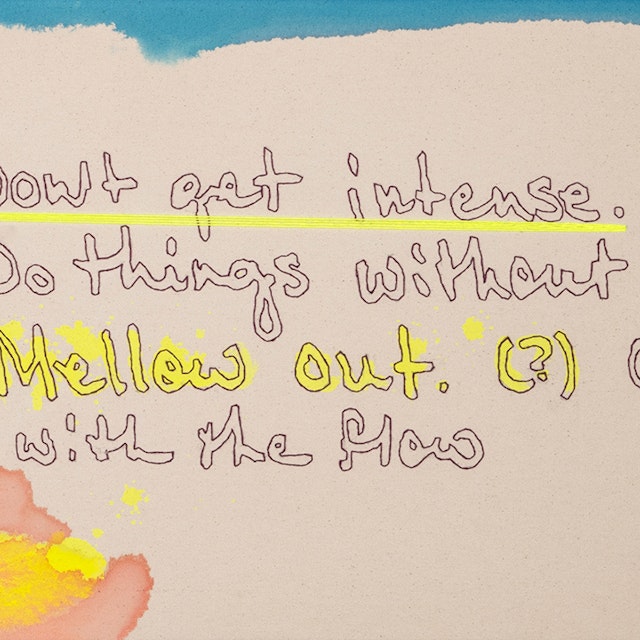 Dont get intense.
Do things without
Mellow out. (?)
with the flow